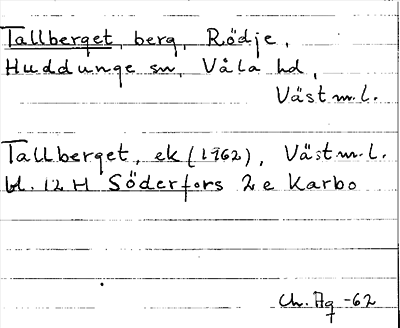 Tallberget, berg, Rödje,
Huddunge sn, Våla hd,
Västm.l.
Tallberget, ek (1962), Västm.l.
bl. 12 H Söderfors 2 e Karbo
Ch. Ag -62